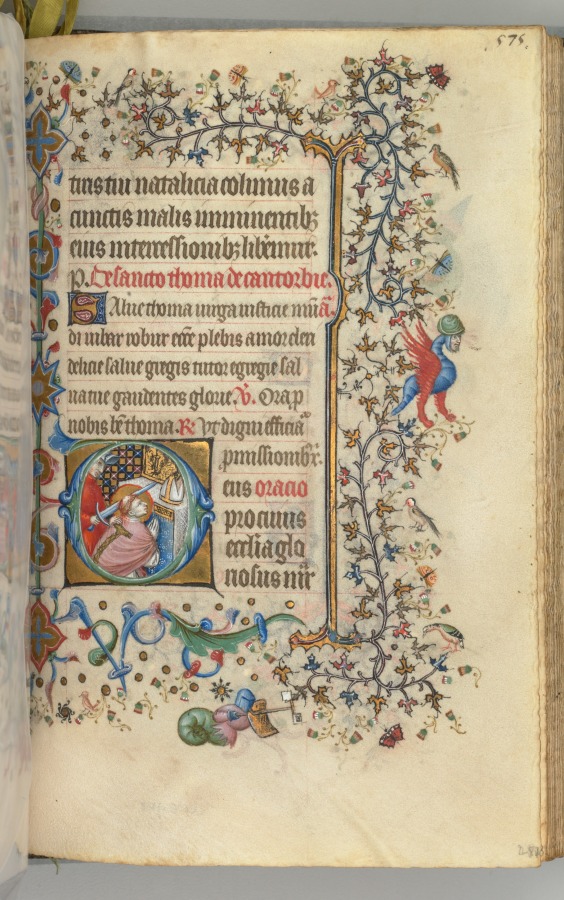 575
tinstiu natalicia colimus a
cunctis malis imminentibꝫ
eius intercessionibꝫ liberiur.
p. De sancto thoma de cantorbie.
Salue thoma uirga iusticie mūā.
di iubar robur ecc̄e plebis amor cleri
delicie salue gregis tutor egregie sal
na tue gaudentes glorie. V. Ora p
nobis bē thoma. R. Vt digni efficiā
pmissionibꝫ.
eus oracio
pro cuius
eccl̄ia glo
riosus